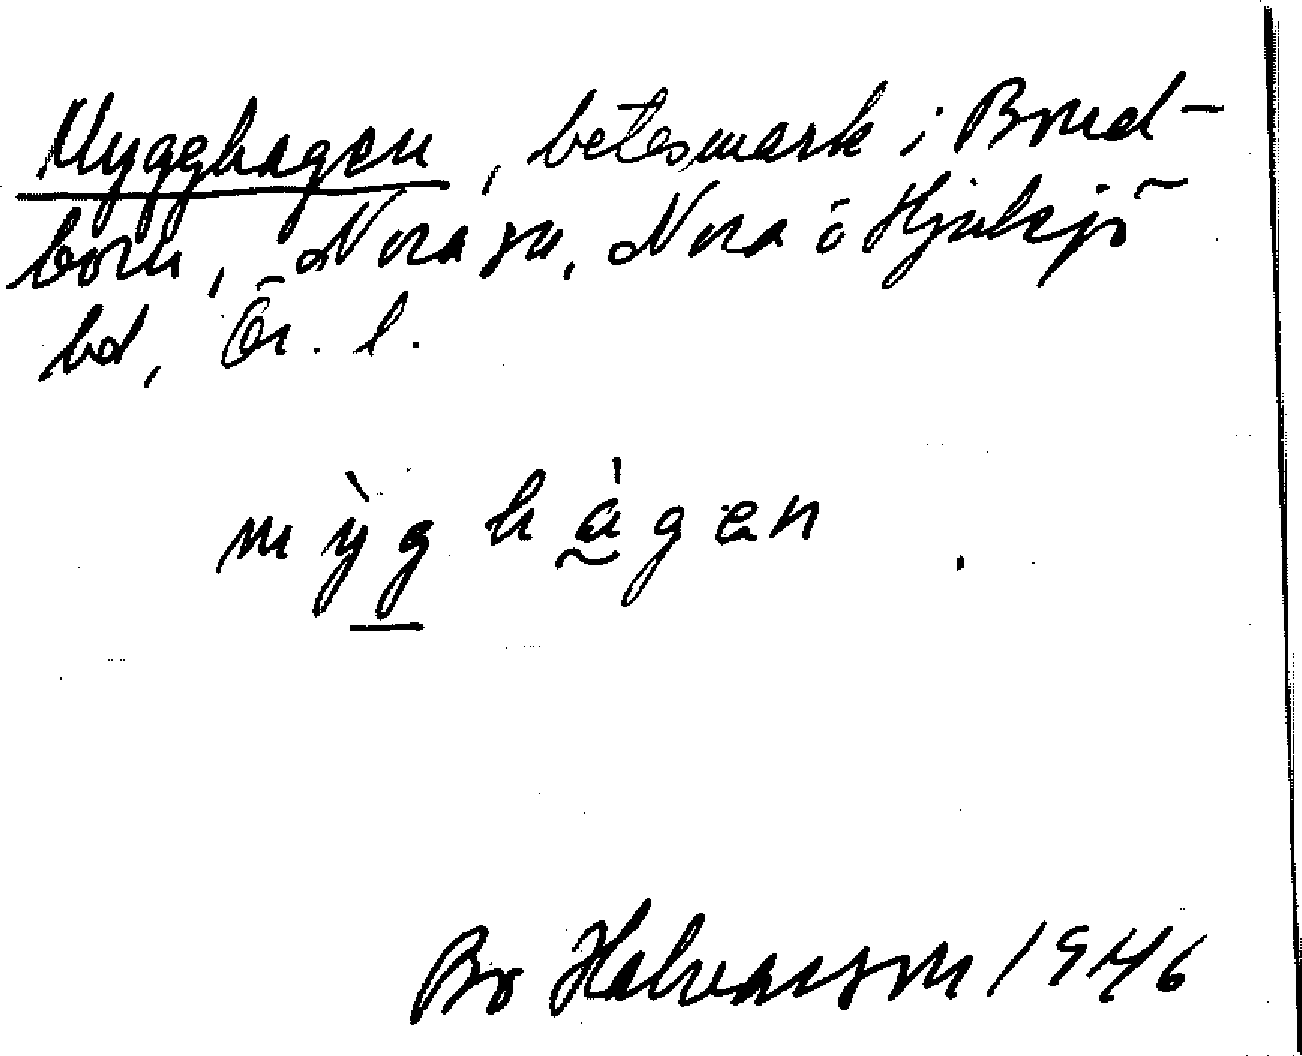 Mygghagen, betesmark i Bond-
born, Nora sn, Nora ö Hjulsjö
bd, Ör. l.
mỳg hàgen
Bo Halvarsson 1946